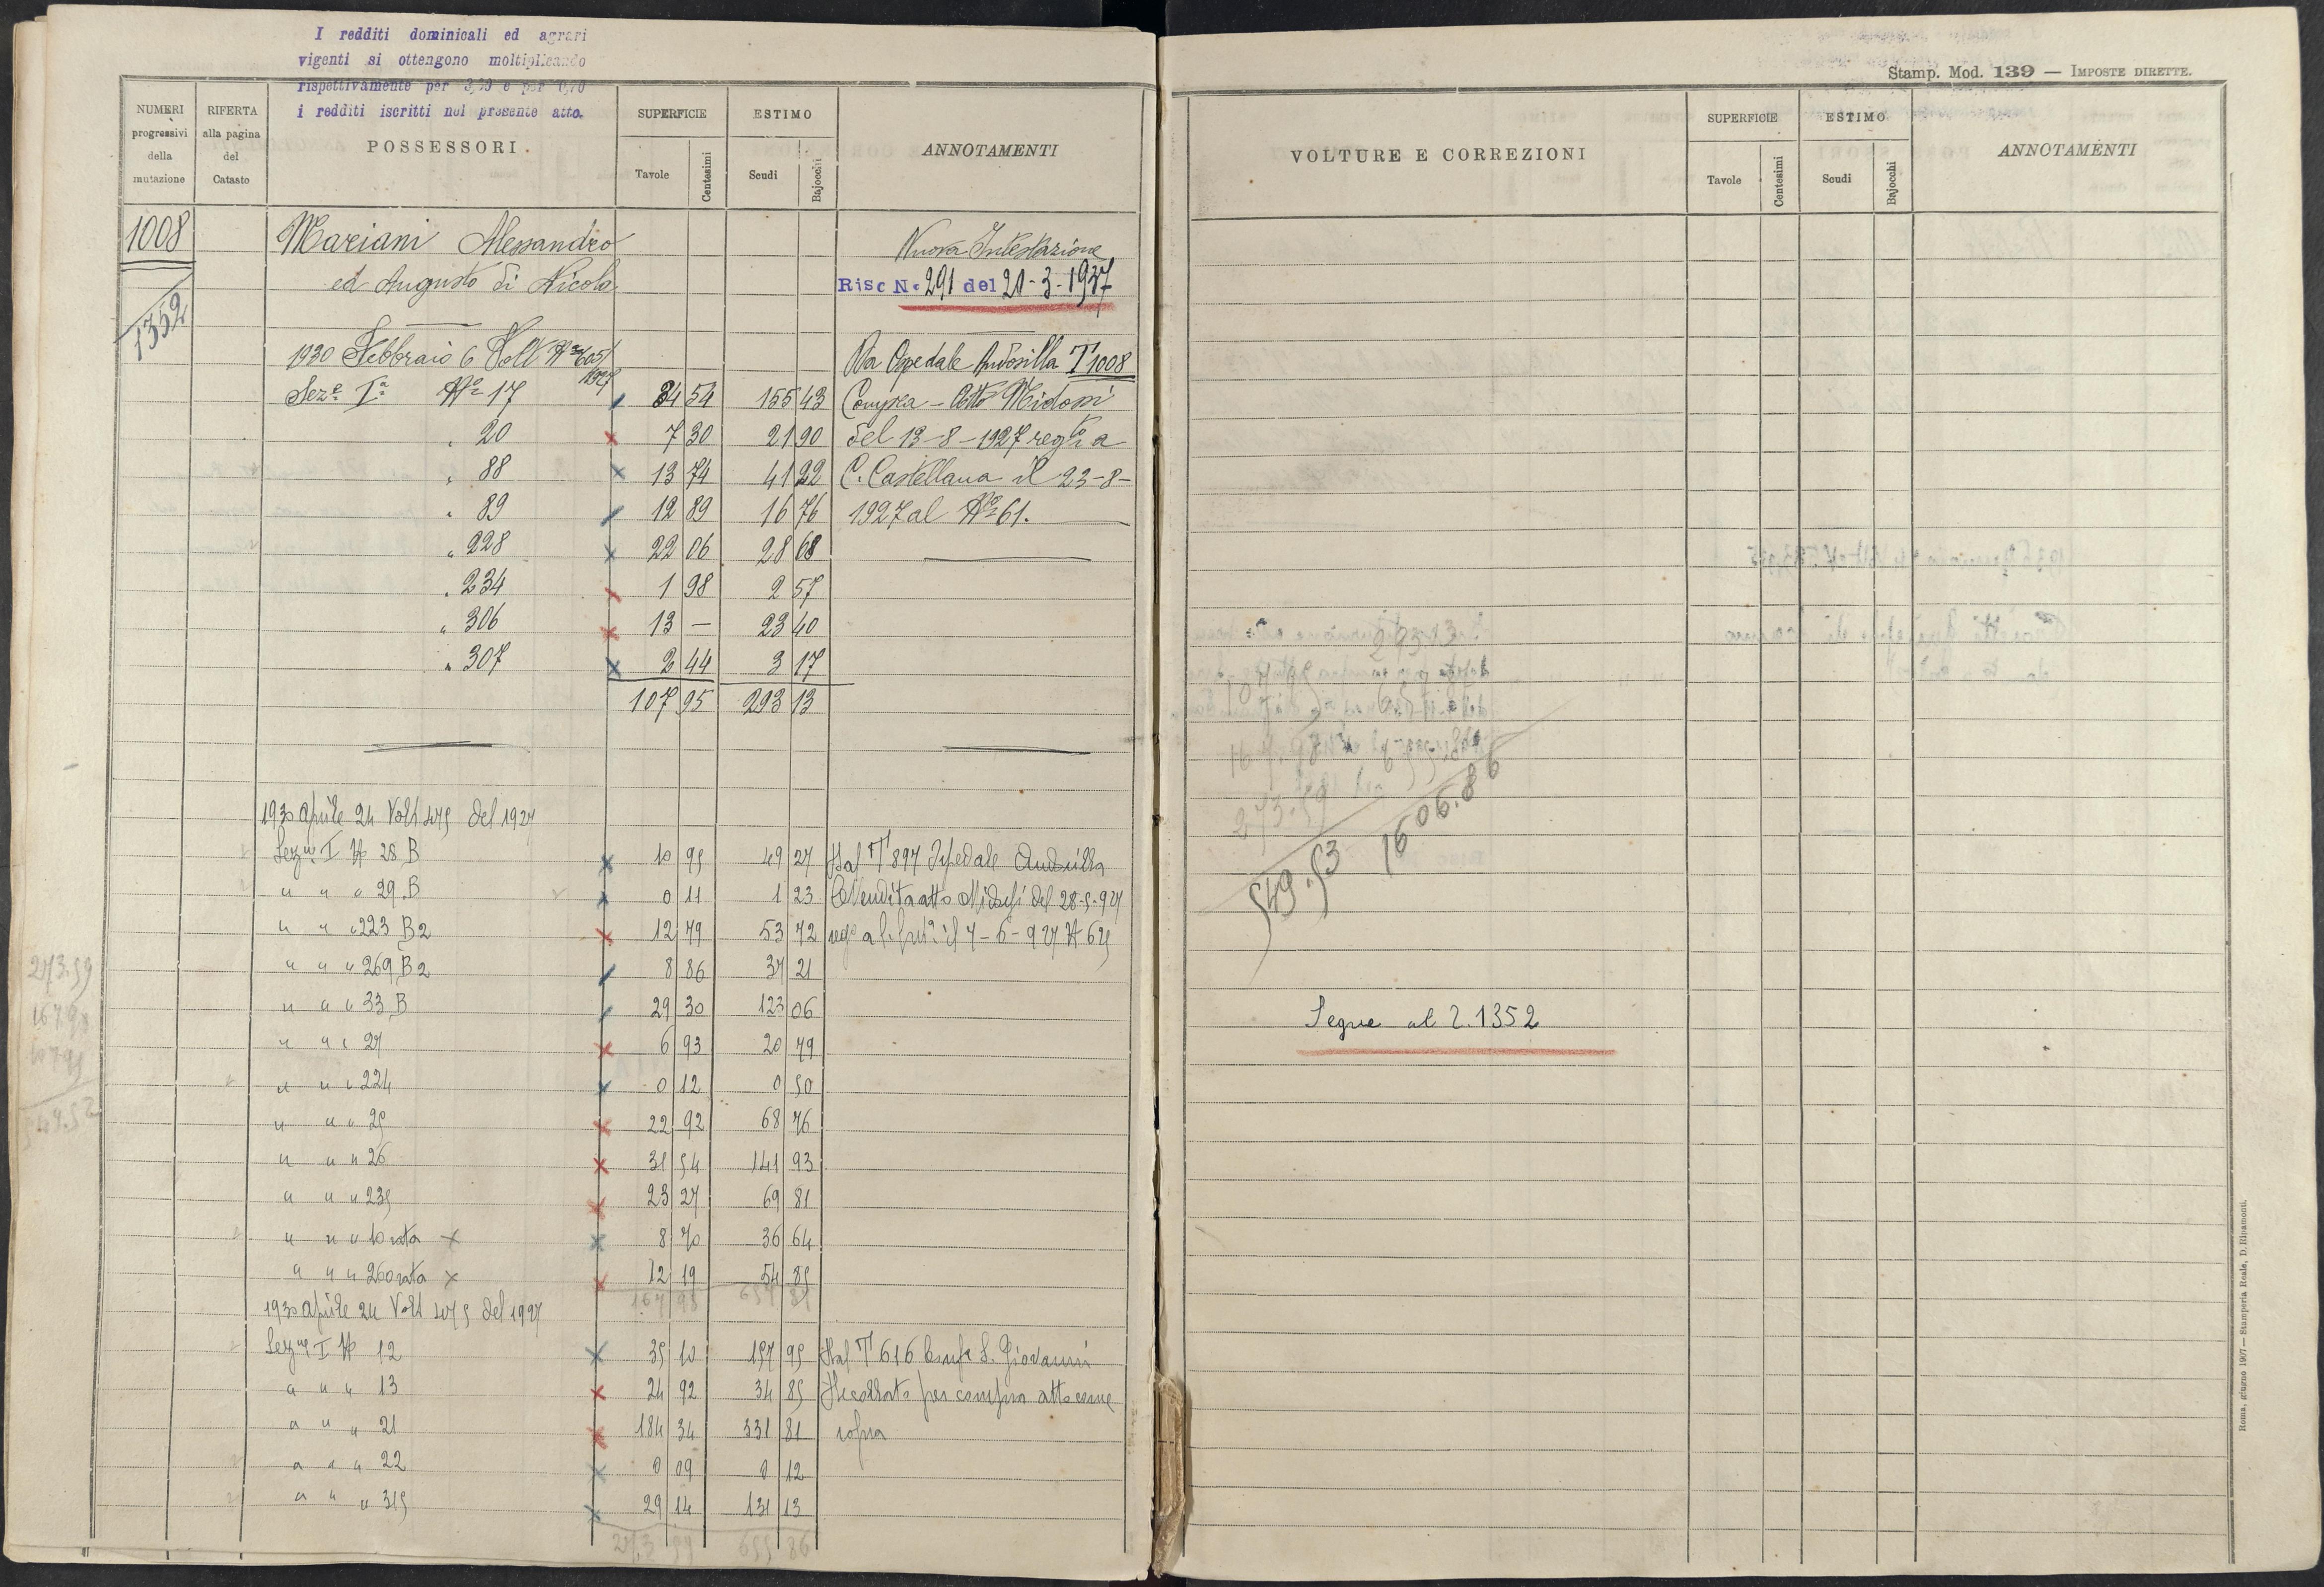 I redditi dominicali ed agrari
vigenti si ottengono moltiplicando
rispettivamente per e per 0,70
i redditi iscritti nel presente atto.
NUMERI
progressivi
della
mutazione
RIFERTA
alla pagina
del
Catasto
POSSESSORI.
SUPERFICIE
Tavole
Centesimi
ESTIMO
Scudi
Bajocchi
ANNOTAMENTI
1008
Mariani Alessandro
Nuova Intestazione
ed Augusto di Nicola
Risc N. 291 del 20-3-1937
1352
1930 Febbraio 6 Volt N° 1927
Da Ospedale Andosilla T 1008
Sez.e Ia N° 17 34 54 155 43 Compra - Atto Midossi
" 20 7 30 21 90 del 13-8-1927 regto a
" 88 13 74 41 22 C. Castellana il 23-8-
" 89 12 89 16 76 1927 al N° 61.
" 228 22 06 28 68
" 234 1 98 2 57
" 306 13 — 23 40
" 307 2 44 3 17
107 95 293 13
1930 Aprile 24 Volt 1075 del 1927
Sez.ne I N 28 B 10 95 49 27 Dal T 897 Ospedale Andosilla
" " " 29 B 0 11 1 23 Vendita atto Midossi del 28-5-927
" " " 223 B2 12 79 53 72 il 7-6-927 N 625
" " " 269 B2 8 86 37 21
" " " 33 B 29 30 123 06
" " " 27 6 93 20 79
" " " 224 0 12 0 50
" " " 25 22 92 68 76
" " " 26 31 54 141 93
" " " 235 23 27 69 81
" " " 10 rata x 8 70 36 64
" " " 260 rata x 12 19 54 85
167 98 657 85
1930 Aprile 24 Volt 1075 del 1927
Sez.ne I N 12 35 10 157 95 Dal T 616 S. Giovanni
" " " 13 24 92 34 85 per compra atto come
" " " 21 184 34 331 81 sopra
" " " 22 0 09 0 12
" " " 315 29 14 131 13
273 59 655 86
273.59
167.98
107.95
549.52
Stamp. Mod. 139 — IMPOSTE DIRETTE.
VOLTURE E CORREZIONI
SUPERFICIE
Tavole
Centesimi
ESTIMO
Scudi
Bajocchi
ANNOTAMENTI
273.59
549.53
1606.86
Segue al T. 1352
Roma, giugno 1907 — Stamperia Reale, D. Ripamonti.